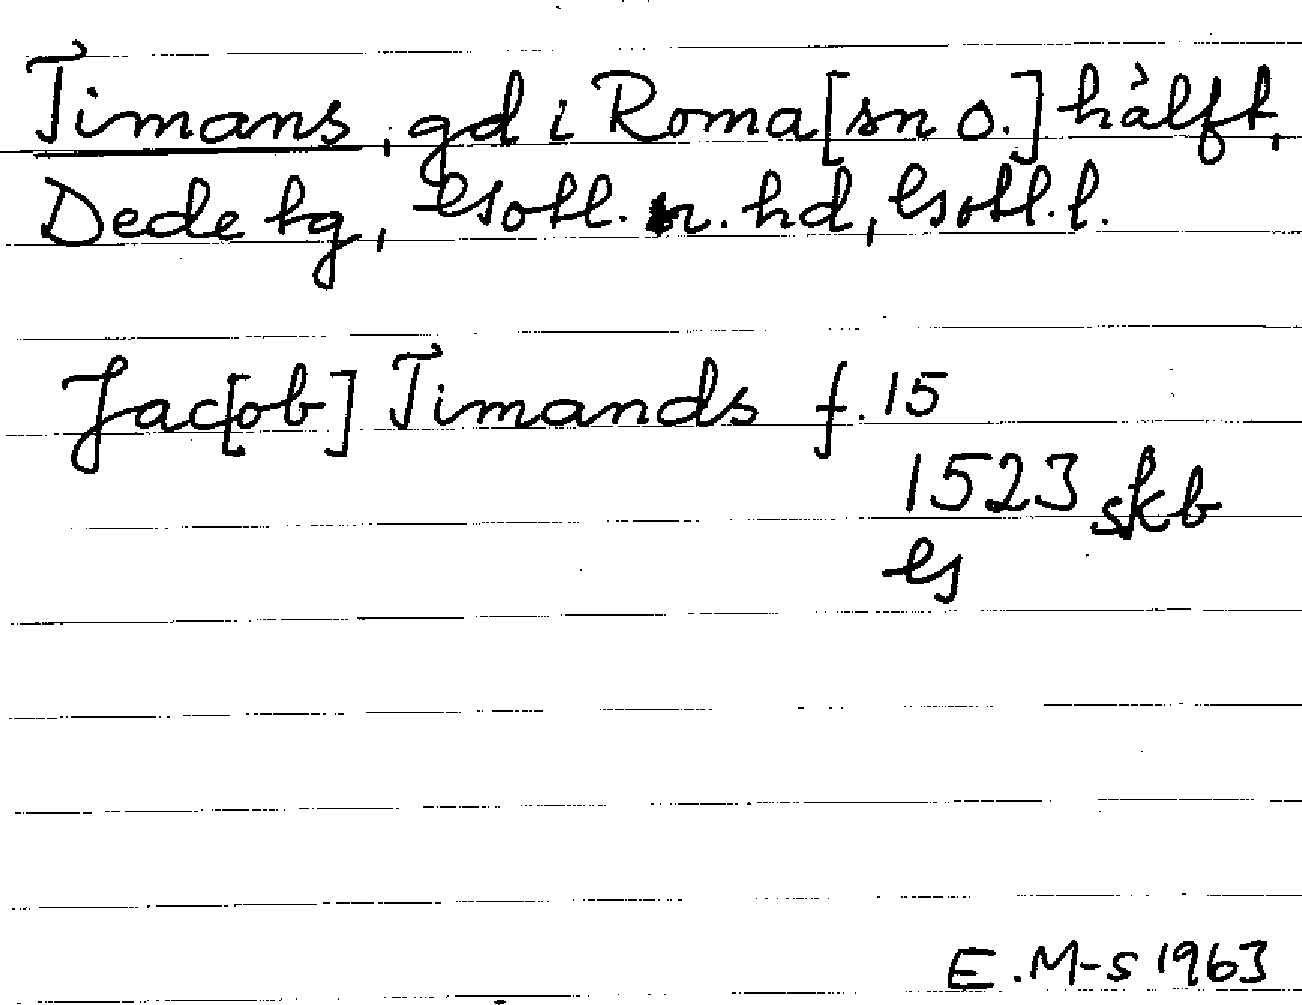 Timans, gd i Roma [sn o.] hälft,
Dede tg, Gotl. n. hd, Gotl. l.
Jac[ob] Timands f. 15
1523 skb
G
E. M-s 1963